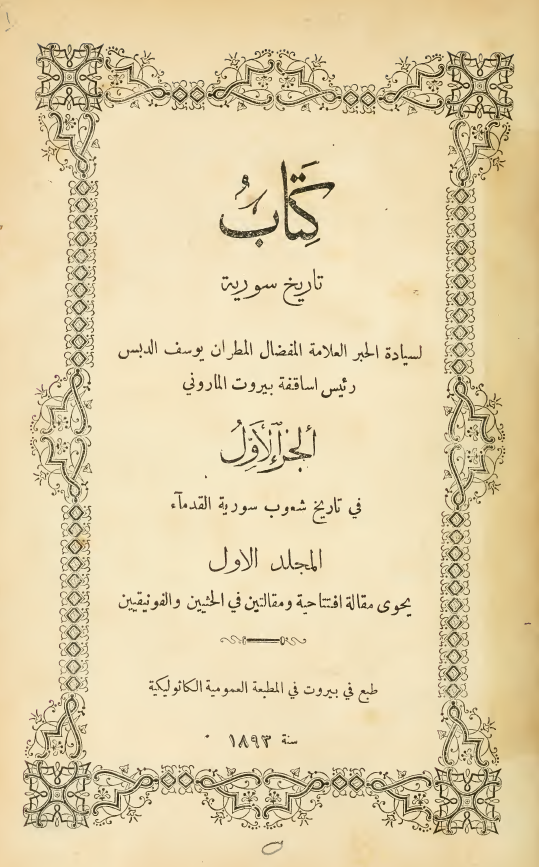 كِتَابُ
تاريخ سورية
لسيادة الحبر العلامة المفضال المطران يوسف الدبس
رئيس اساقفة بيروت الماروني
ألجزءُ الأوَّلُ
في تاريخ شعوب سورية القدمآء
المجلد الاول
يحوى مقالة افتتاحية ومقالتين في الحثيين والفونيقيين
طبع في بيروت في المطبعة العمومية الكاثوليكية
سنة ١٨٩٣